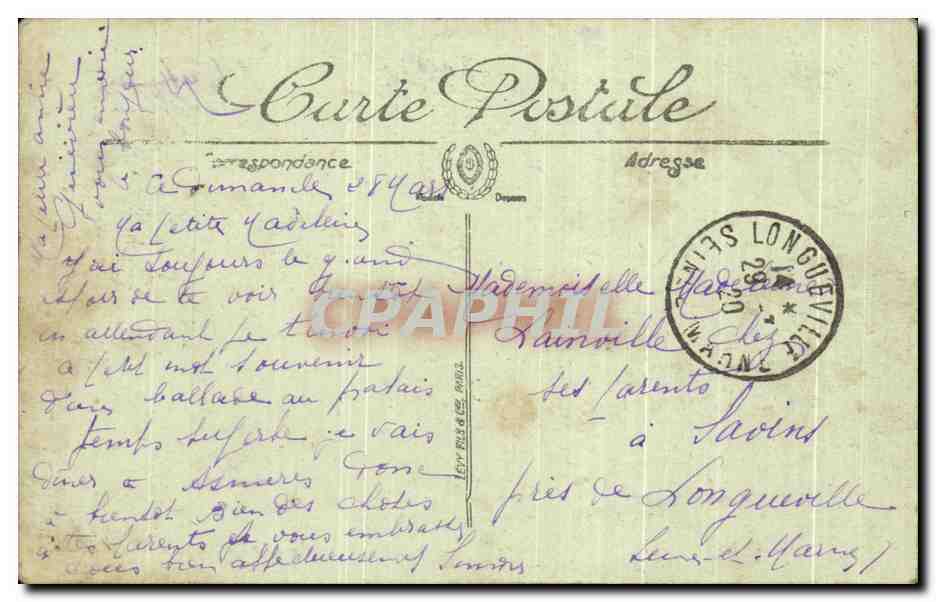 Carte Postale
Correspondance
Adresse
Modèle Déposé
ce Dimanche 28 Mars
Ma Petite Madeleine
J'ai toujours le grand
espoir de te voir bientôt
en attendant je t'
à petit mot souvenir
d'une ballade au palais
temps superbe je vais
diner à Asnieres
à bientot Bien des choses
à tes Parents je vous embrasse
tous bien affectueusement
Mademoiselle Madeleine
Lainville chez
ses Parents
à Savins
près de Longueville
Seine-et-Marne
LONGUEVILLE
SEINE ET MARNE
29
20
LEVY FILS & Cie, PARIS.
CPAPHIL